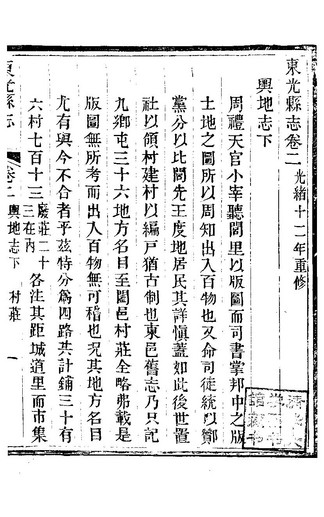 東光縣志卷二 光緒十二年重修
輿地志下
周禮天官小宰聽閭里以版圖而司書掌邦中之版
土地之圖所以周知出入百物也又命司徒統以鄼
黨分以比閭先王度地居民其詳愼蓋如此後世置
社以領村建村以編戸猶古制也東邑舊志乃只記
九鄉屯三十六地方名目至闔邑村莊全略弗載是
版圖無所考而出入百物無可稽也况其地方名目
尤有與今不合者乎玆特分爲四路共計鋪三十有
六村七百十三 廢莊二十三在內 各注其距城道里而市集
東光縣志 卷二 輿地志下 村莊 一